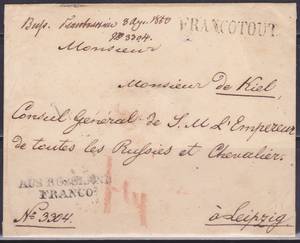 FRANCOTOUT
No 3304.
Monsieur
Monsieur de Kiel
Conseil Général de S. M. L'Empereur
de toutes les Russies et Chevalier.
AUS RUSSLAND
FRANCO
No 3304.
à Leipzig.